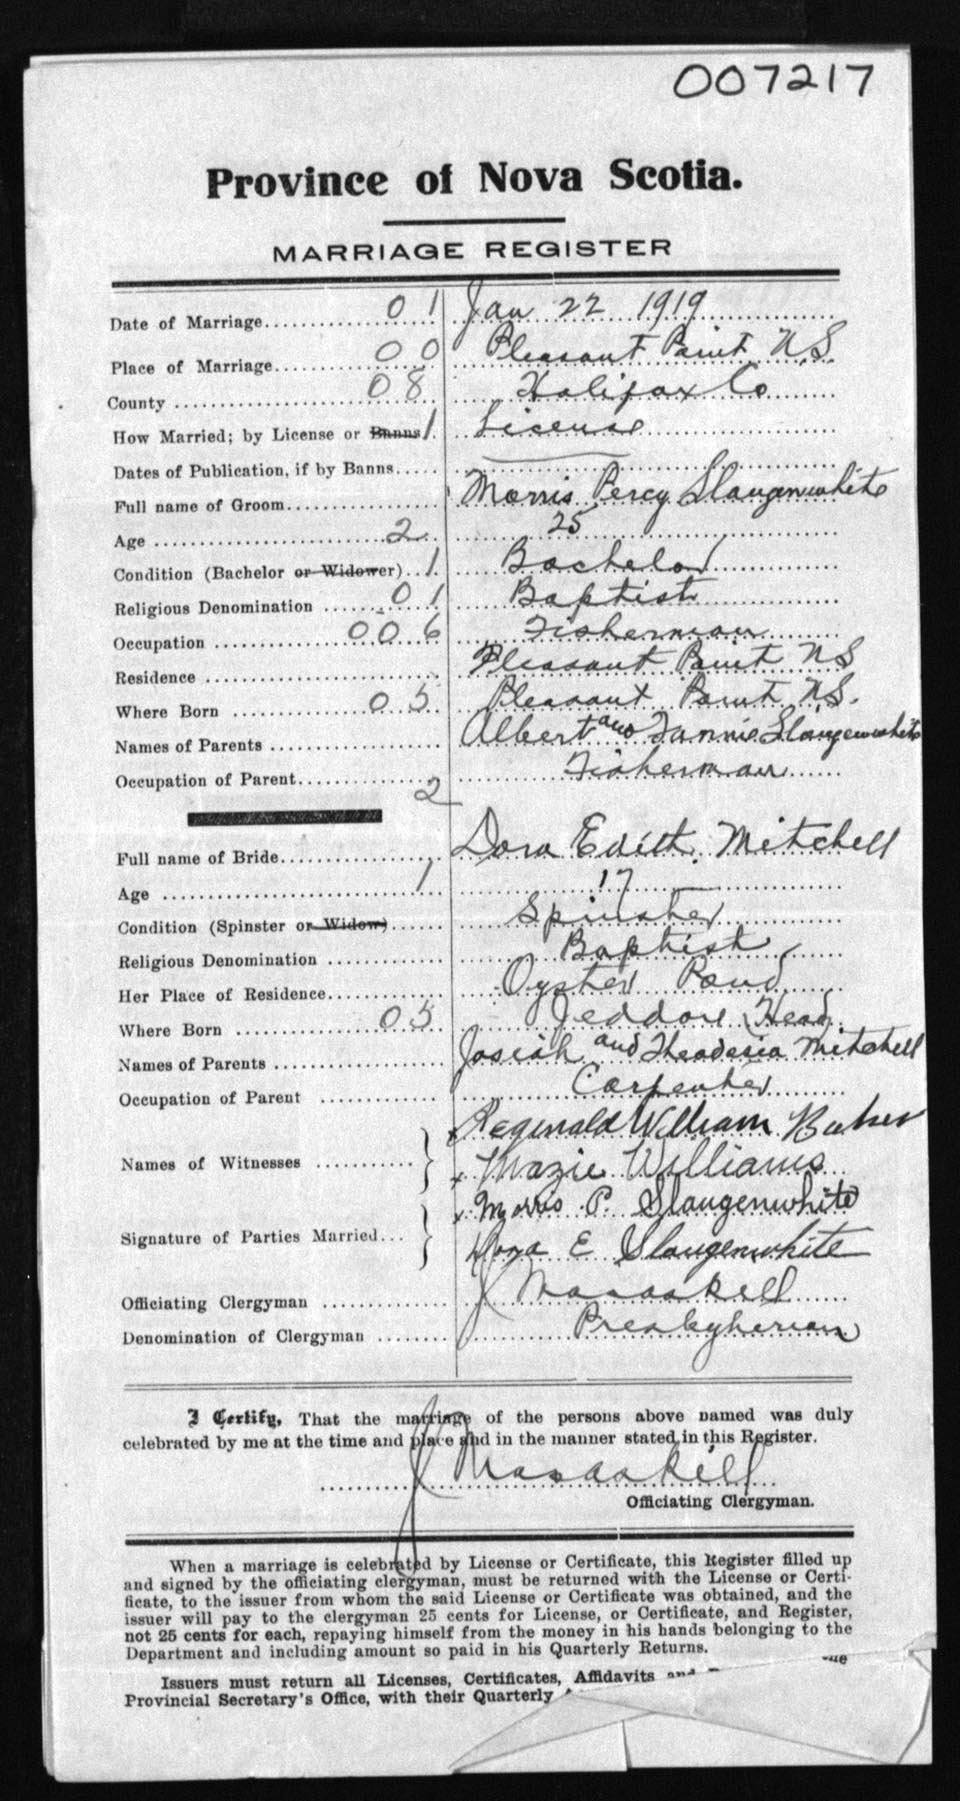 007217
Province of Nova Scotia.
MARRIAGE REGISTER
Date of Marriage 01 Jan 22 1919
Place of Marriage 00 Pleasant Point N.S.
County 08 Halifax Co
How Married; by License or Banns 1 License
Dates of Publication, if by Banns
Full name of Groom Morris Percy Slaugenwhite
Age 2 25
Condition (Bachelor or Widower) 1 Bachelor
Religious Denomination 01 Baptist
Occupation 006 Fisherman
Residence Pleasant Point NS
Where Born 05 Pleasant Point N.S.
Names of Parents Albert and Fannie Slaugenwhite
Occupation of Parent Fisherman
2
Full name of Bride Dora Edith Mitchell
Age 1 17
Condition (Spinster or Widow) Spinster
Religious Denomination Baptist
Her Place of Residence Oyster Pond
Where Born 05 Jeddore Head
Names of Parents Josiah and Theodesia Mitchell
Occupation of Parent Carpenter
Names of Witnesses x Reginald William Baker
x Mazie Williams
Signature of Parties Married x Morris P. Slaugenwhite
Dora E Slaugenwhite
Officiating Clergyman J Macaskill
Denomination of Clergyman Presbyterian
I Certify, That the marriage of the persons above named was duly
celebrated by me at the time and place and in the manner stated in this Register.
J Macaskill
Officiating Clergyman.
When a marriage is celebrated by License or Certificate, this Register filled up
and signed by the officiating clergyman, must be returned with the License or Certi-
ficate, to the issuer from whom the said License or Certificate was obtained, and the
issuer will pay to the clergyman 25 cents for License, or Certificate, and Register,
not 25 cents for each, repaying himself from the money in his hands belonging to the
Department and including amount so paid in his Quarterly Returns.
Issuers must return all Licenses, Certificates, Affidavits and
Provincial Secretary's Office, with their Quarterly